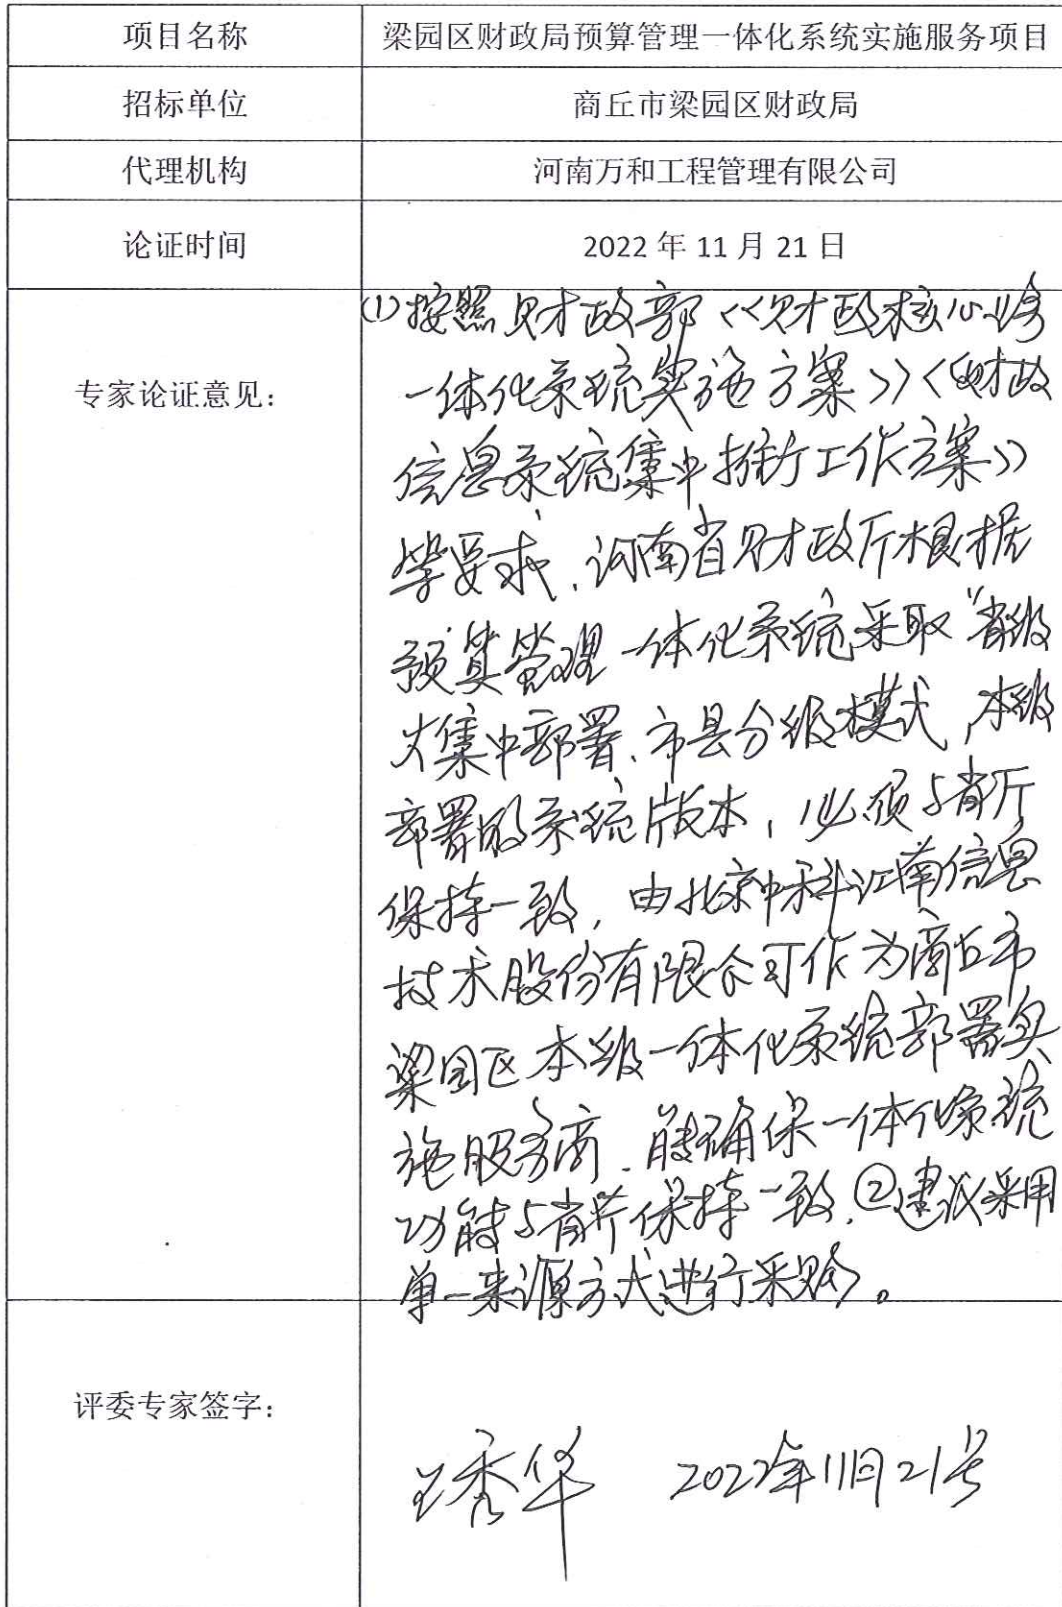 项目名称 梁园区财政局预算管理一体化系统实施服务项目
招标单位 商丘市梁园区财政局
代理机构 河南万和工程管理有限公司
论证时间 2022 年 11 月 21 日
专家论证意见:
(1)按照财政部《财政核心业务
一体化系统实施方案》《财政
信息系统集中推广工作方案》
等要求,河南省财政厅根据
预算管理一体化系统采取“省级
大集中部署、市县分级模式,本级
部署的系统版本,必须与省厅
保持一致,由北京中科江南信息
技术股份有限公司作为商丘市
梁园区本级一体化系统部署实
施服务商,能确保一体化系统
功能与省厅保持一致.②建议采用
单一来源方式进行采购。
评委专家签字:
王秀华 2022年11月21号